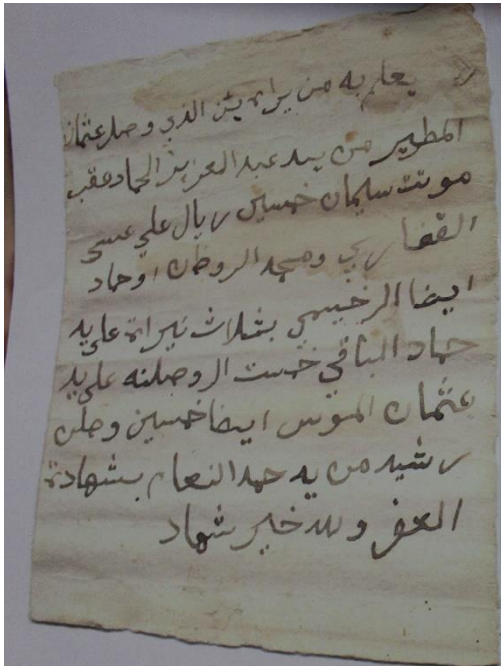 يعلم به من يراه بن الذي وصل عثمان
المطير من يد عبد العزيز الحماد عقب
موتت سليمان خمسين ريال علي عيسى
القضا ربي ومحمد الروطان وحماد
ايضا الرخيمي بثلاث نيرات على يد
حماد الباقي خمست الروصلنه على يد
عثمان المونس ايضا خمسين وصلن
رشيد من يد حمد النعام بشهادة
العفر ولله خير شهاد